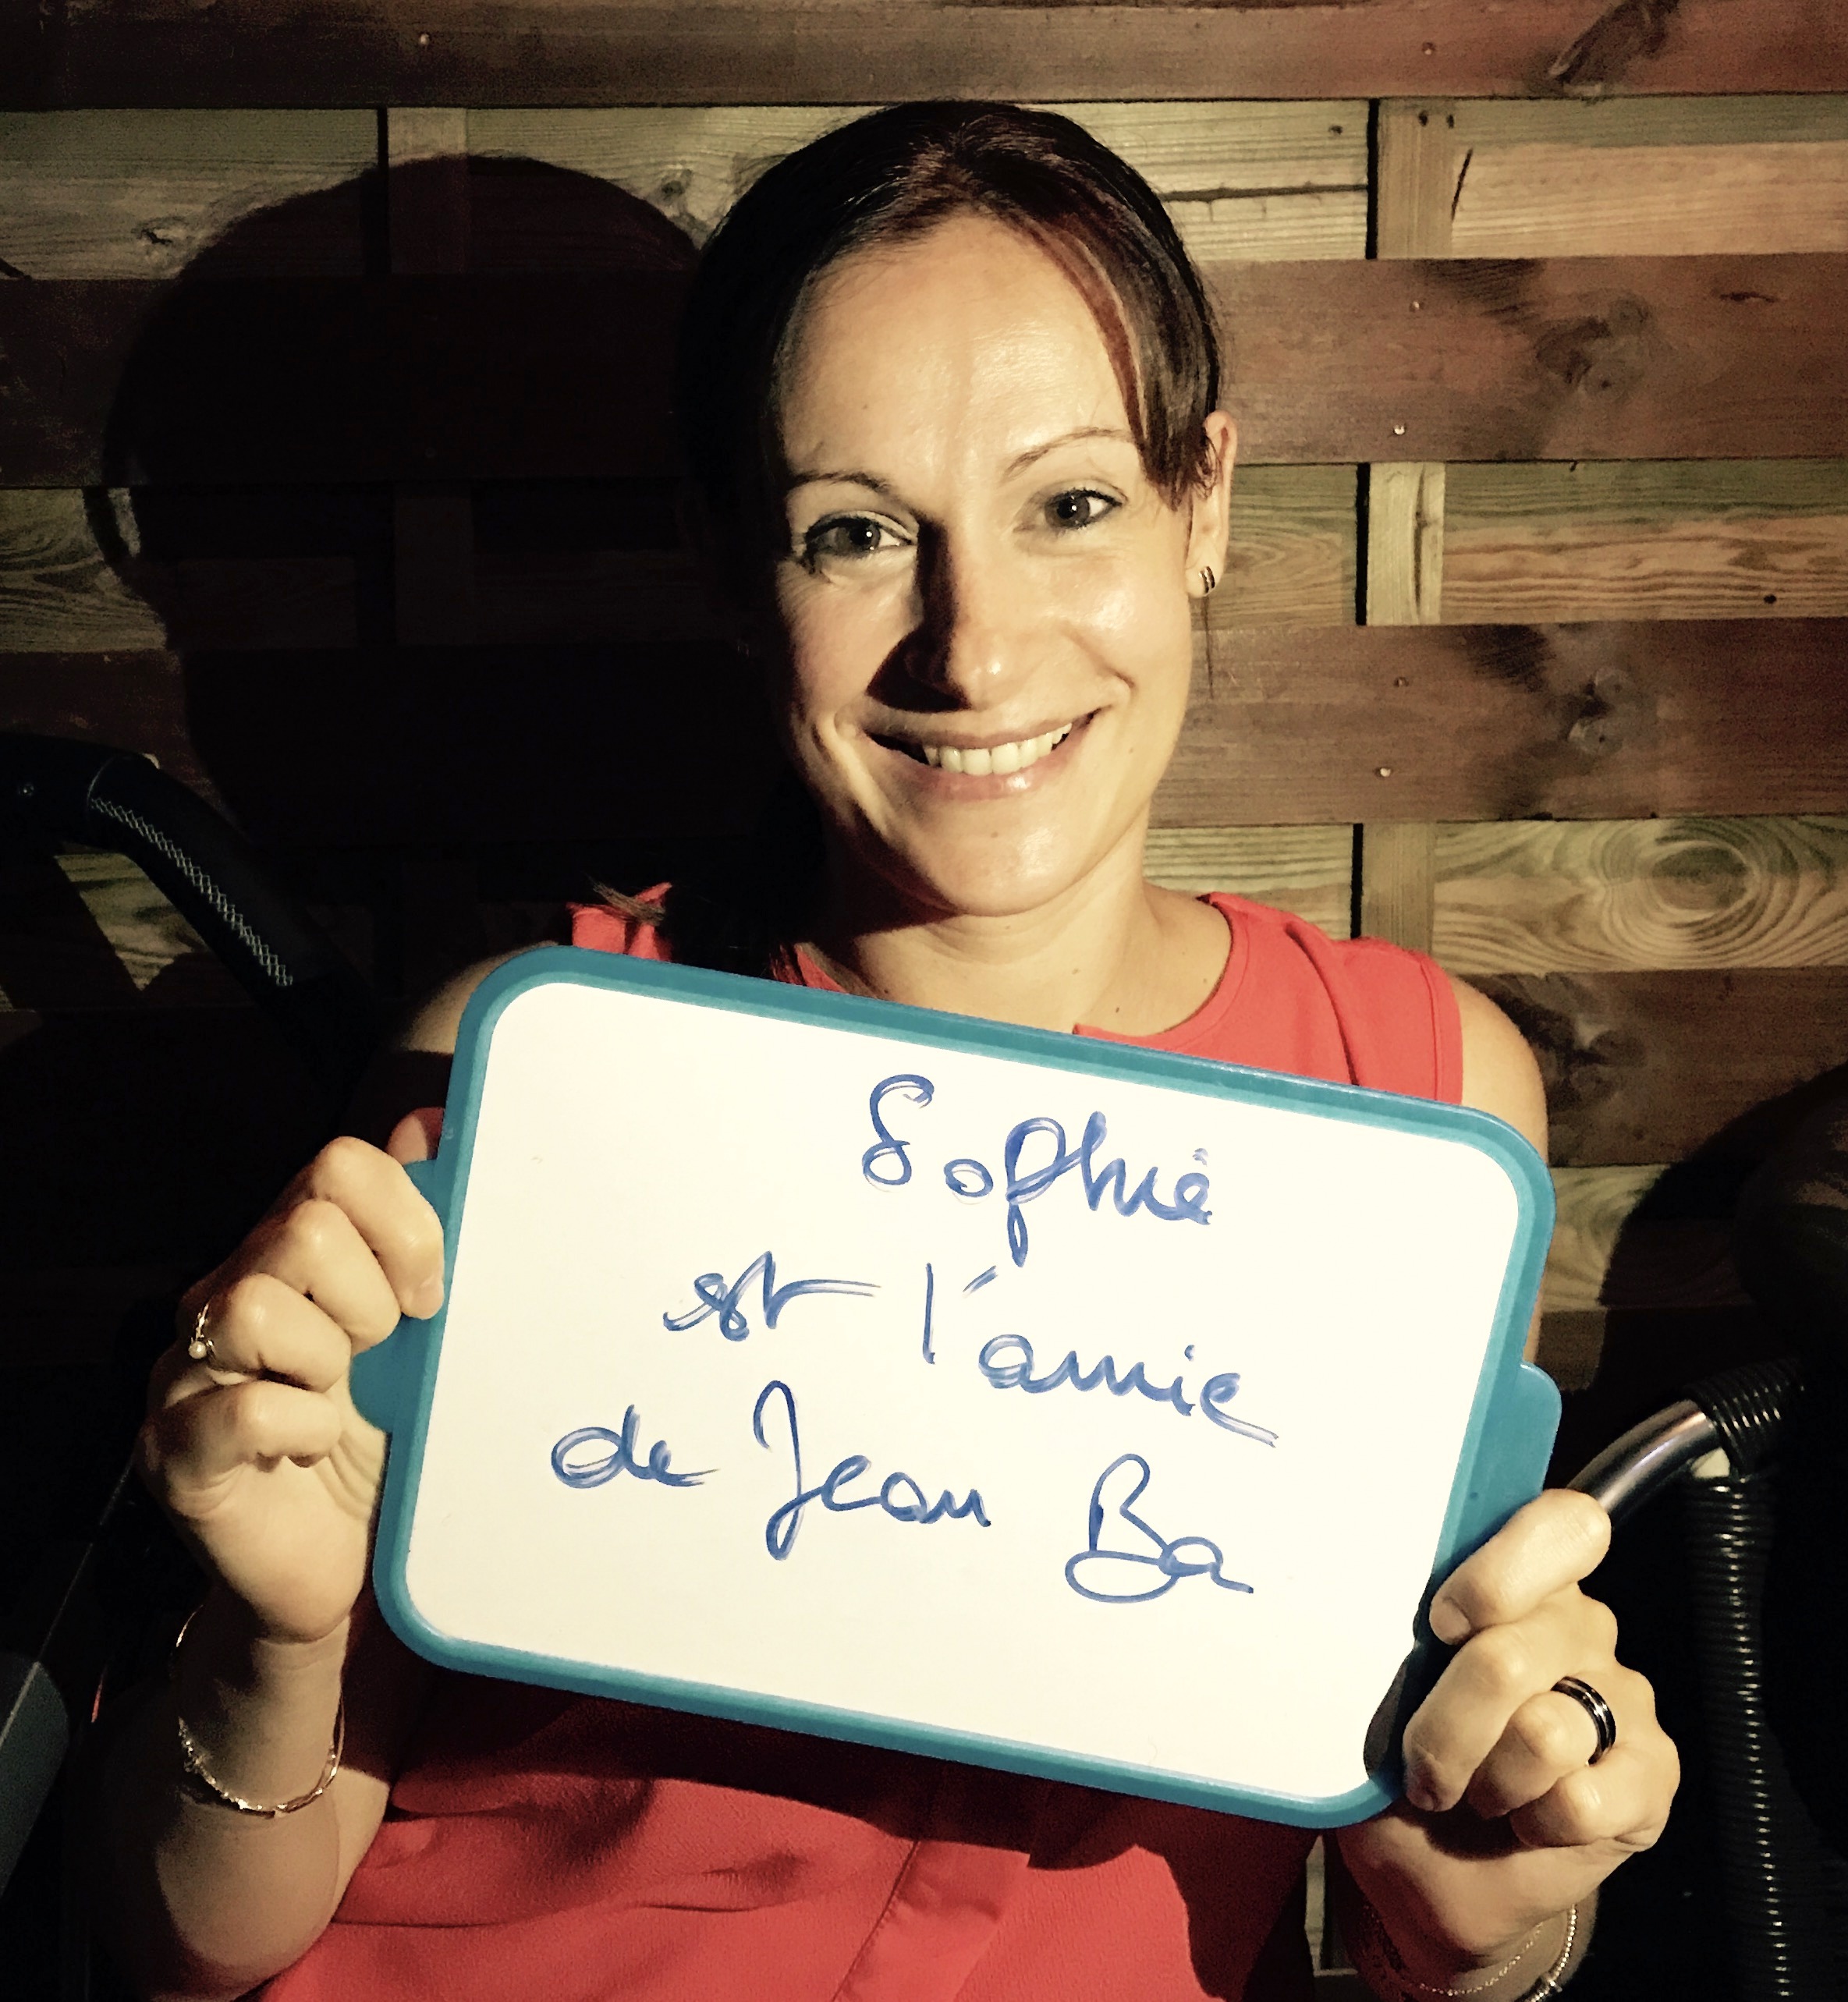 Sophie
est l'amie
de Jean Ba